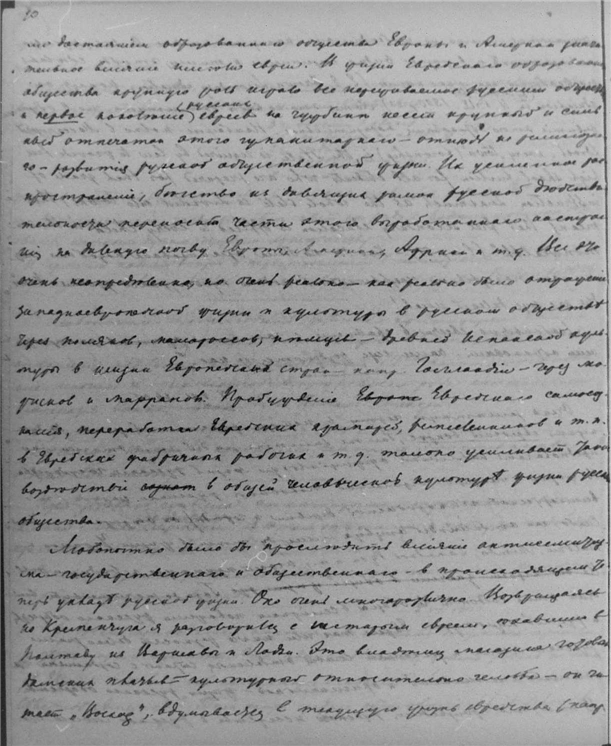 30
достоянием образованного общества Европы и Америки значи-
тельное влияние имели евреи. В жизни Еврейского образованного
общества крупную роль играло все переживаемое русским обществом
и первое поколение русских евреев за границей несет крупный и силь-
ный отпечаток этого гуманитарного — отнюдь не религиозно-
го — развития русской общественной жизни. Их усиленное рас-
пространение, бегство из давящих рамок русской действи-
тельности переносит части этого выработанного
на далекую почву Европы, Америки, Африки и т.д. Все это
очень неопределенно, но очень реально — как реально было отражение
западноевропейской жизни и культуры в русском обществѣ
через поляков, малороссов, немцев — древней Испанской куль-
туры в жизни Европейских стран — напр. Голландии — через мо-
рисков и марранов. Пробуждение Еврейского самосо-
знания, переработка Еврейских кустарей, ремесленников и т.п.
в Еврейских фабричных рабочих и т.д. только усиливает
воздѣйствие в общей человѣческой культурѣ жизни русск.
общества.
Любопытно было бы проследить влияние антисемитиз-
ма — государственного и общественного — в происходящем
теперь укладѣ русской жизни. Оно очень многоразлично. Возвращаясь
из Кременчуга я разговорился с старым евреем, ехавшим в
Полтаву из Варшавы и Лодзи. Это владелец магазина готовых
дамских платьев — культурный относительно человѣк — он чи-
тает „Восход", вдумывается в текущую жизнь еврейства (напр.